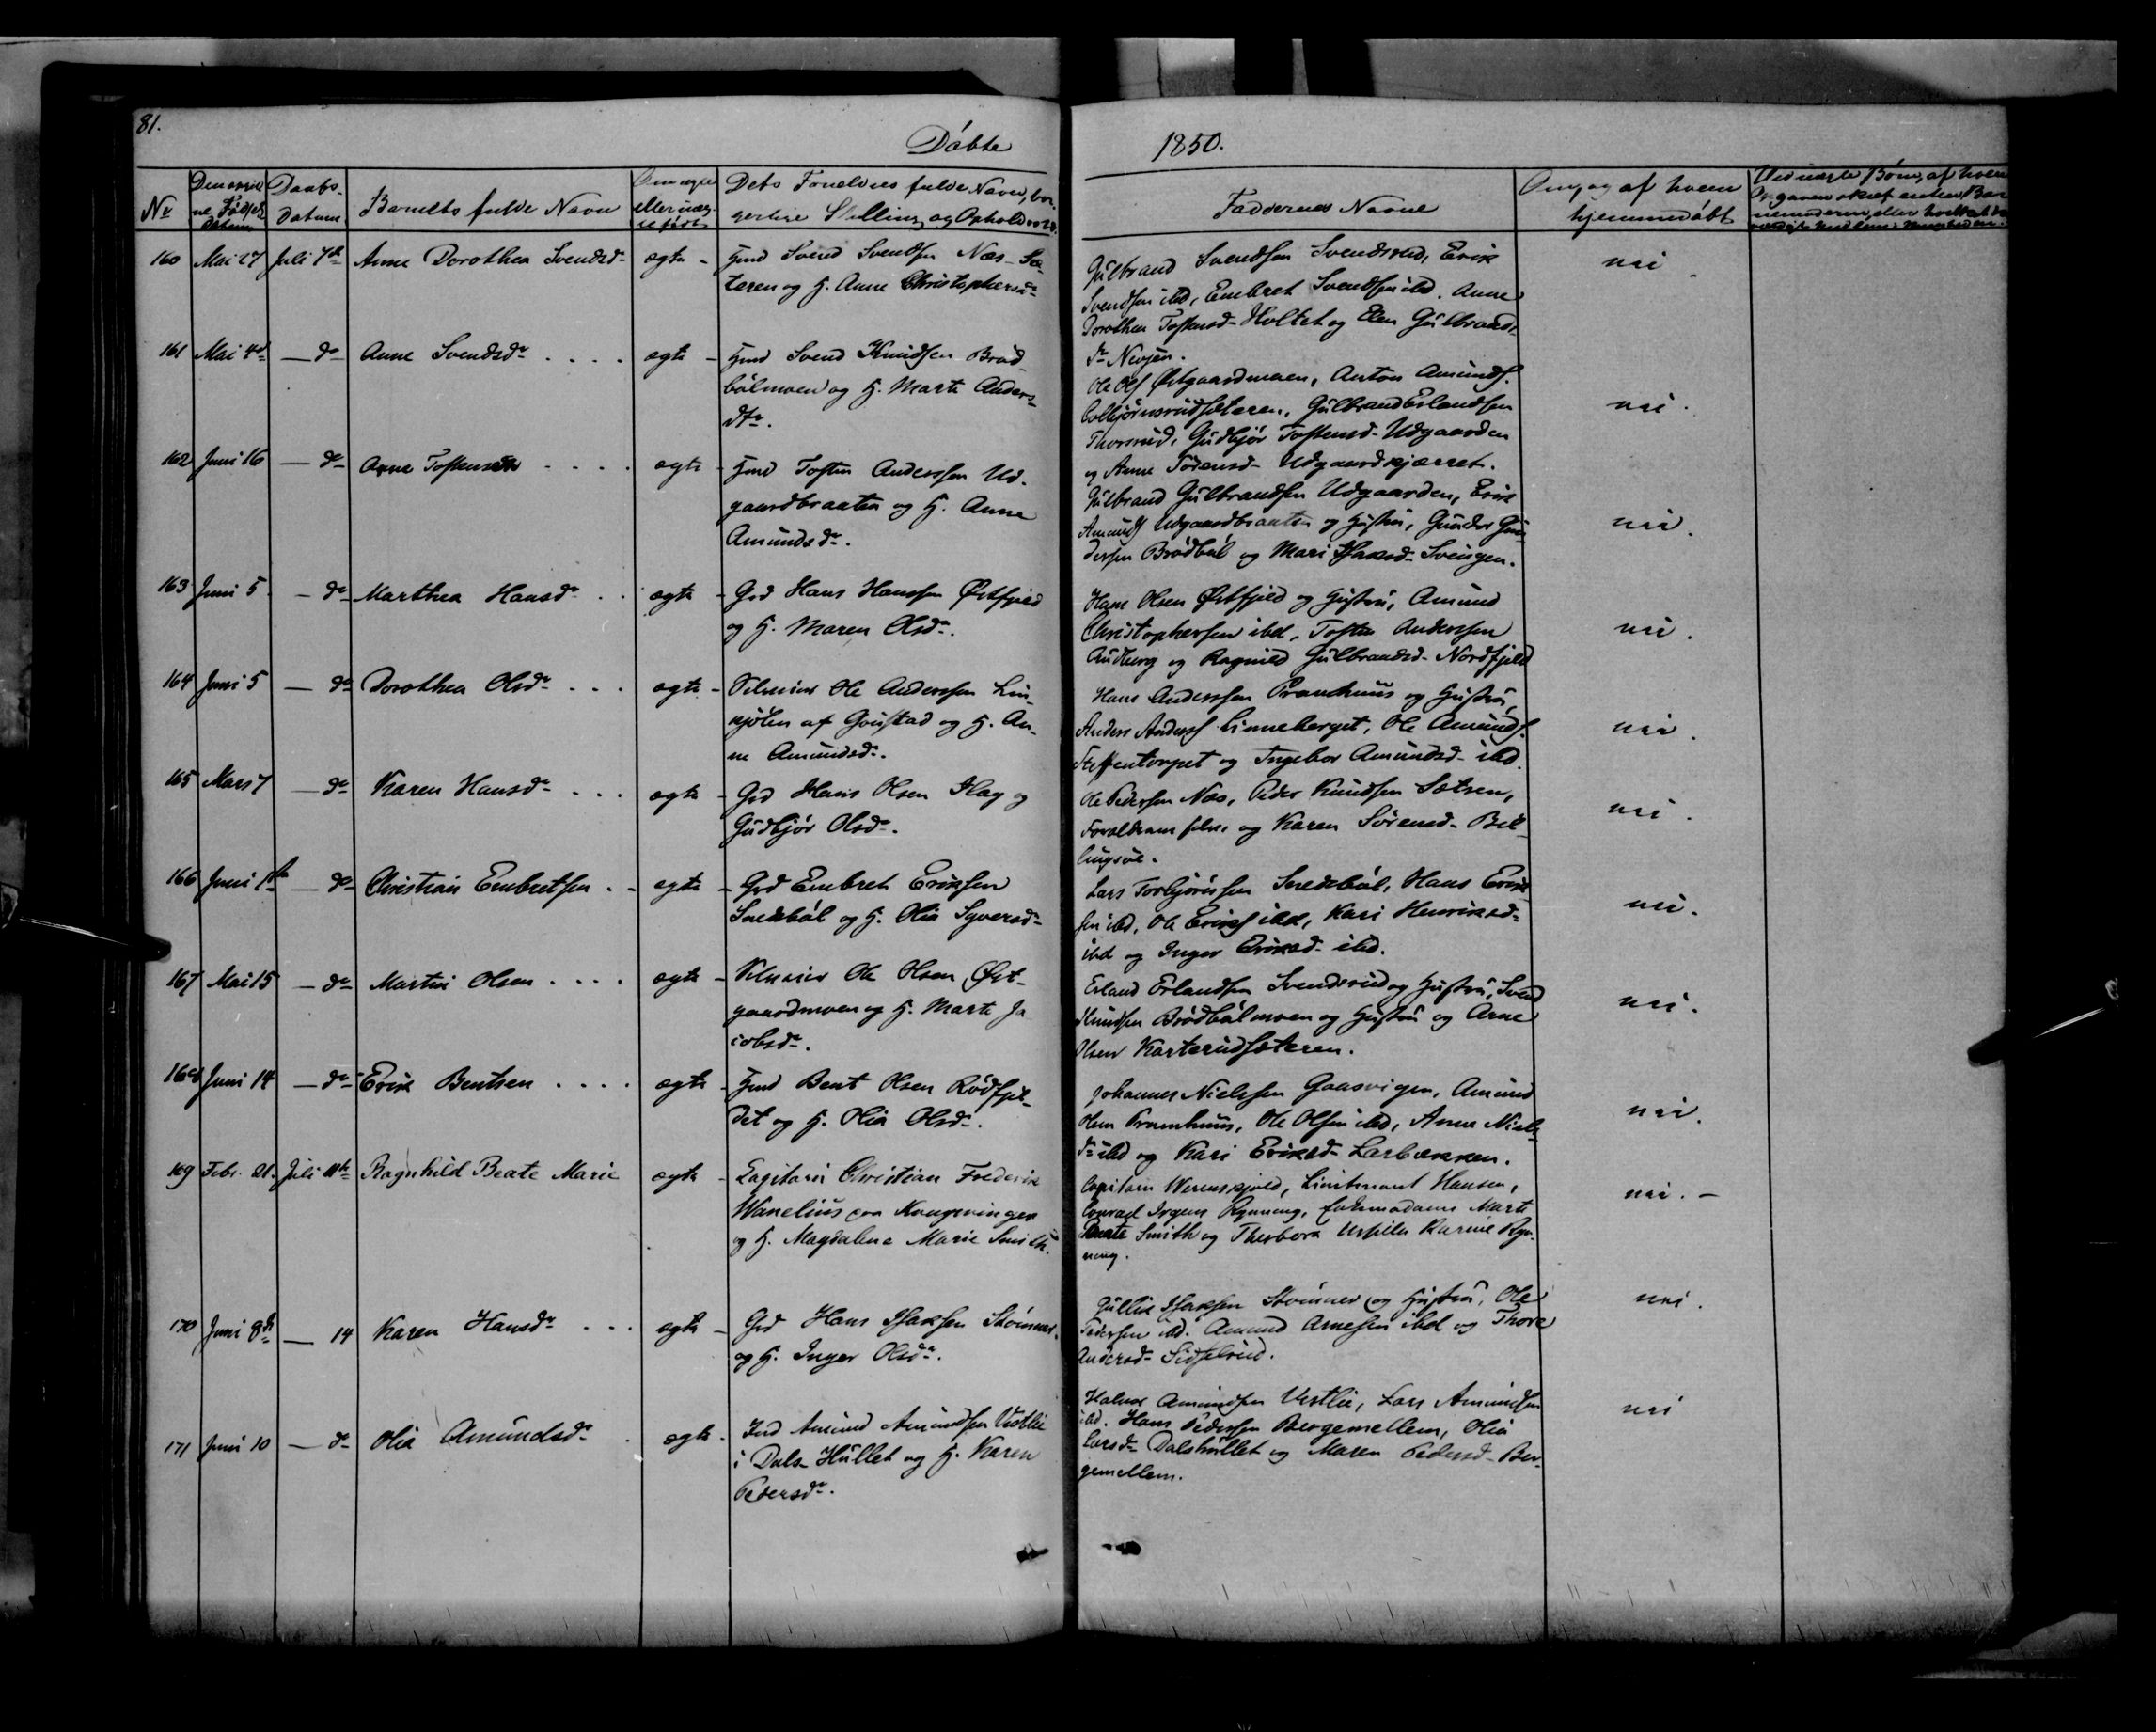 81.
Døbte
1850.
No
Fødsels
Datum
Daabs-
datum
Barnets fulde Navn
Om ægte
eller uæg-
te født
Dets Forældres fulde Navn, bor-
gerlige Stilling og Opholdssted.
Faddernes Navne
Om og af hvem
hjemmedøbt
160 Mai 27 Juli 7de Anne Dorothea Svendsdr ægte - Hmd Svend Svendsen Næs-Sæ-
teren og H. Anne Christophersdr
Gulbrand Svendsen Svendsrud, Erik
Svendsen ibd, Embret Svendsen ibd. Anne
Dorothea Tostensd- Holtet og Elen Gulbrands
dr
nei
161 Mai 4de — do Anne Svendsdr .... ægte - Hmd Svend Knudsen Brød-
bølmoen og H. Marte Anders-
dtr.
Ole Ols Østgaardmoen, Anton Amunds.
Colbjørnsrudsæteren, Gulbrand Erlandsen
Thorsrud, Gudbjør Tostensd- Udgaarden
og Anne Sørensd- Udgaardkjærret.
nei.
162 Juni 16 — do Anne Tostensdr .... ægte - Hmd Tosten Anderssen Ud-
gaardbraaten og H. Anne
Amundsdr.
Gulbrand Gulbrandsen Udgaarden, Erik
Amunds Udgaardbraaten og Hustru, Gunder Gun
dersen Brødbøl og Mari Isaksd- Svingen.
nei.
163 Juni 5. — do Marthea Hansdr .. ægte - Grd Hans Hanssen Østfjeld
og H. Maren Olsdr.
Hans Olsen Østfjeld og Hustru, Amund
Christophersen ibd, Tosten Anderssen
Audberg og Ragnild Gulbrandsd- Nordfjeld
nei.
164 Juni 5 — do Dorothea Olsdr ... ægte - Ole Anderssen Lin-
kjølen af Goustad og H. An-
ne Amundsdr.
Hans Anderssen Pramhuus og Hustru,
Anders Anders Linneberget, Ole Amunds.
Steffentorpet og Ingebor Amundsd- ibd.
nei.
165 Mars 7 — do Karen Hansdr ... ægte - Grd Hans Olsen Hag og
Gudbjør Olsdr.
Ole Pedersen Næs, Peder Knudsen Sætren,
og Karen Sørensd- Bil-
lingsøe.
nei.
166 Juni — do Christian Embretsen .. ægte - Grd Embret Eriksen
Snedsbøl og H. Olia Syversdr
Lars Torbjørnsen Snedsbøl, Hans Erik
sen ibd, Ole Eriks ibd, Kari Henriksd-
ibd og Inger Eriksd- ibd.
nei.
167 Mai 15 — do Martin Olsen .... ægte - Ole Olsen Øst-
gaardmoen og H. Marte Ja
cobsdr.
Erland Erlandsen Svendsrud og Hustru, Svend
Knudsen Brødbølmoen og Hustru og Arne
Olsen Karterudsæteren.
nei.
168 Juni 14 — do Erik Bentsen .... ægte - Hmd Bent Olsen Rødfjel-
det og H. Olia Olsdr.
Johannes Nielssen Gaasvigen, Amund
Olsen Pramhuus, Ole Olsen ibd, Anne Niels
dr ibd og Kari Eriksd- Larbækken.
nei.
169 Febr. 21. Juli 11te Ragnhild Beate Marie ægte - Capitain Christian Frederik
Wanelius paa Kongsvinger
og H. Magdalena Marie Smith.
Capitain Werenskjold, Lieutenant Hansen,
Conrad Irgens Rynning, Enkemadame Marte
Beate Smith og Karine Ryn-
ning.
nei. -
170 Juni 8de — 14 Karen Hansdr ... ægte - Grd Hans Isaksen Stømner
og H. Inger Olsdr.
Gullik Isaksen Stømner og Hustru, Ole
Pedersen ibd. Amund Arnesen ibd og Thore
Andersd- Sidselrud.
nei.
171 Juni 10 — do Olia Amundsdr . ægte - Ind Amund Amundsen Vestlie
i Dals-Hullet og H. Karen
Pedersdr.
Halvor Amundsen Vestlie, Lars Amundsen
ibd. Hans Pedersen Bergemellem, Olia
Larsdr Dalshullet og Maren Pedersd- Ber-
gemellem.
nei